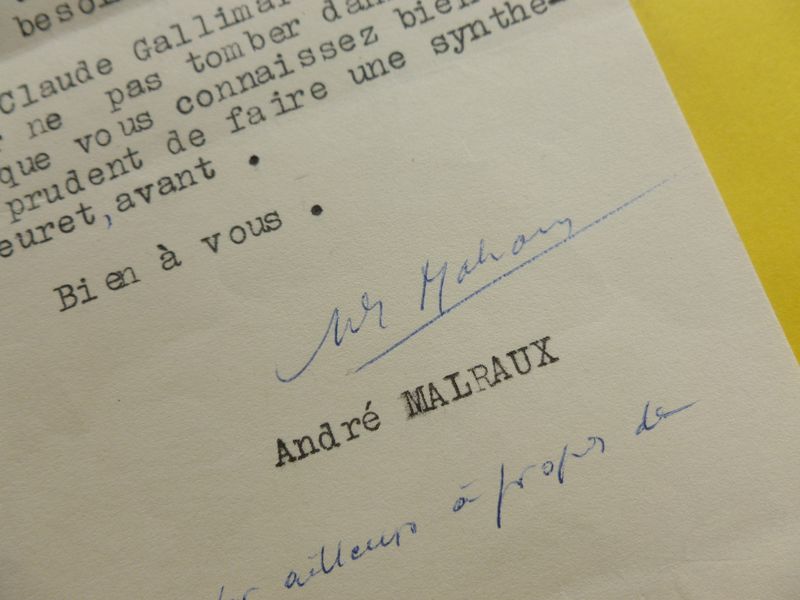 beso
Claude Gallima
ne pas tomber da
que vous connaissez bien
prudent de faire une synthè
euret, avant .
Bien à vous .
André MALRAUX
ailleurs à propos de